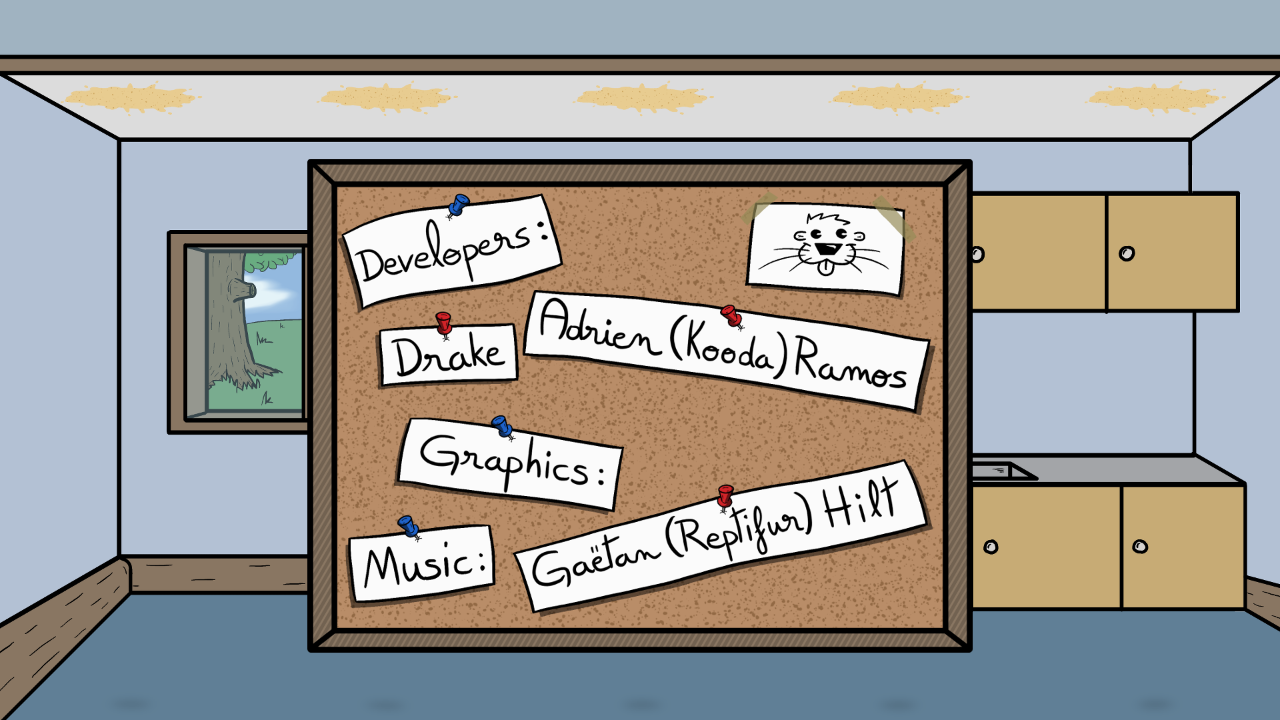 Developers:
Drake
Adrien (Kooda) Ramos
Graphics:
Music:
Gaëtan (Reptifur) Hilt